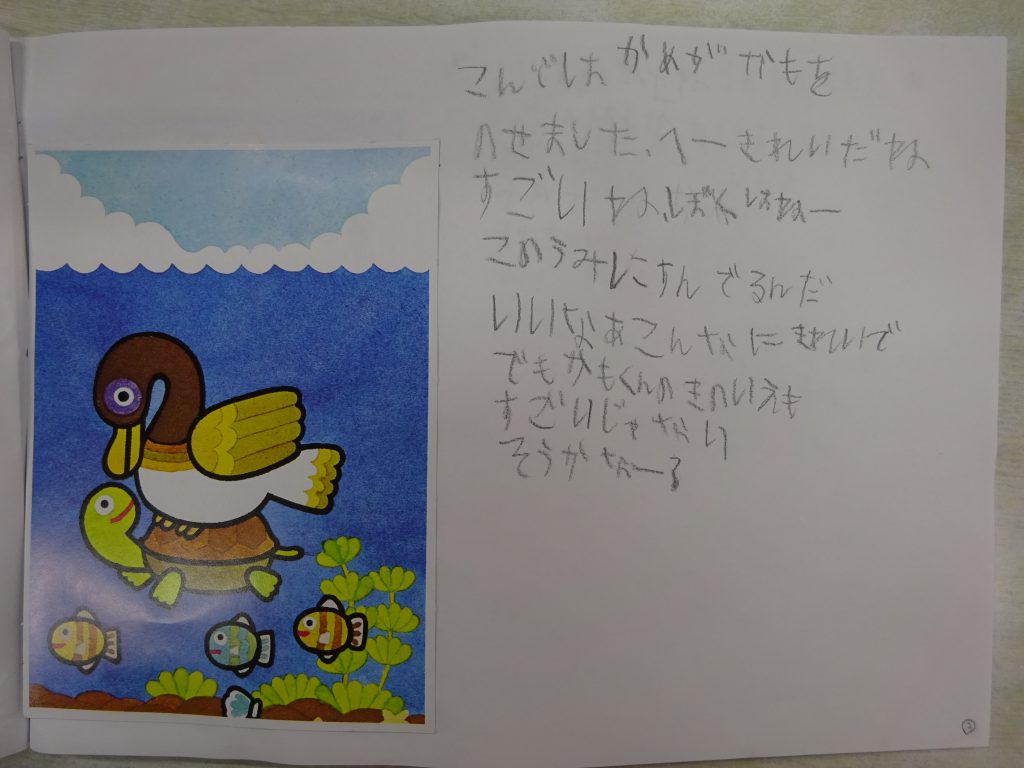 こんでしは かめが かもを
のせました、へーきれいだね
すごいね、ぼくはねー
このうみにすんでるんだ
いいなあこんなに きれいで
でもかもくんのきのいえも
すごいじゃない
そうかなー
③